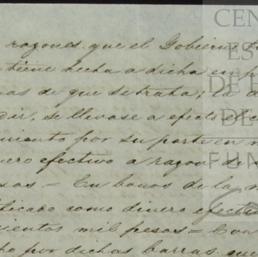 razones que el Gobierno
tiene hecha a dicha
mas de que se trata; se
dir, se llevase a efecto el
miento por su parte en
ero efectivo a razon de
sos — En bonos de la
ificado como dinero efectivo
cientos mil pesos — Con
ho por dichas barras que
CEN
ES
DE
DE
FUN